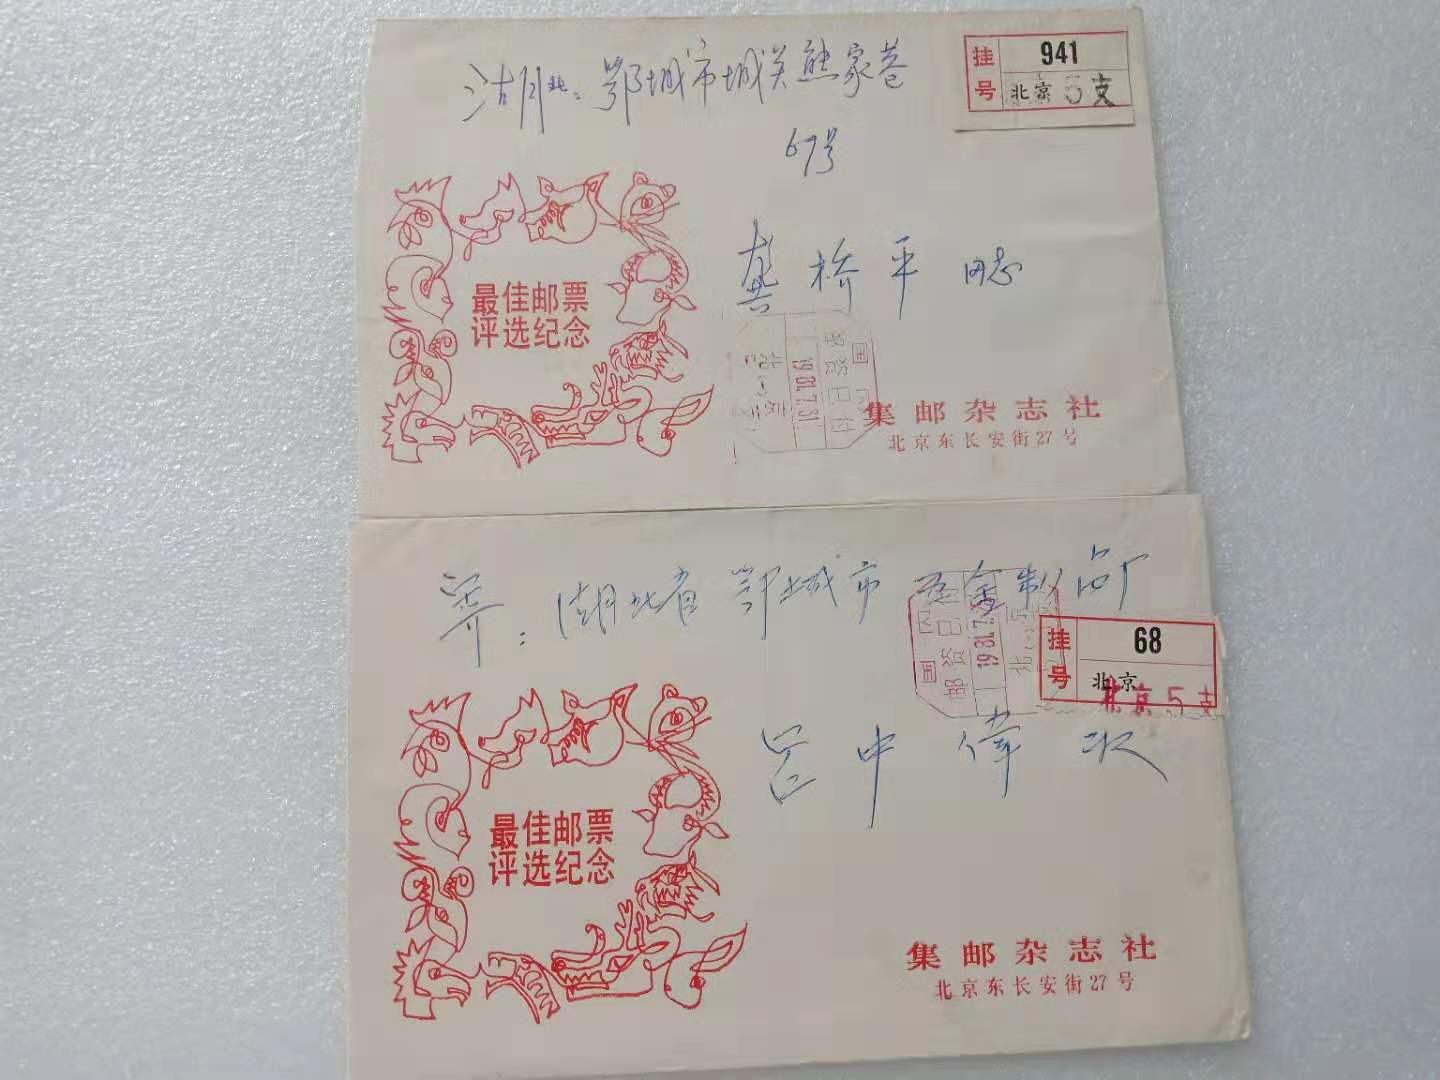 湖北：鄂城市城关熊家巷
67号
挂号
941
北京5支
龚桥平 同志
最佳邮票
评选纪念
国内
邮资已付
1981.7.31
北京
集邮杂志社
北京东长安街27号
寄：湖北省鄂城市五金制品厂
国内
邮资已付
挂号
68
北京
北京5支
吕中伟 收
最佳邮票
评选纪念
集邮杂志社
北京东长安街27号